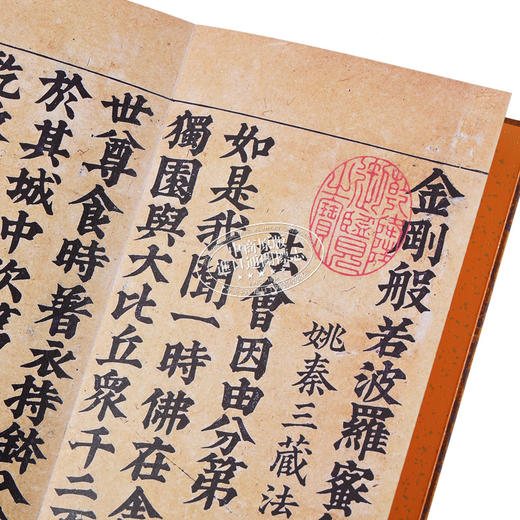 金剛般若波羅蜜
姚秦三藏法
法會因由分第
如是我聞一時佛在舍
獨園與大比丘衆千二百
世尊食時著衣持鉢入
於其城中次第